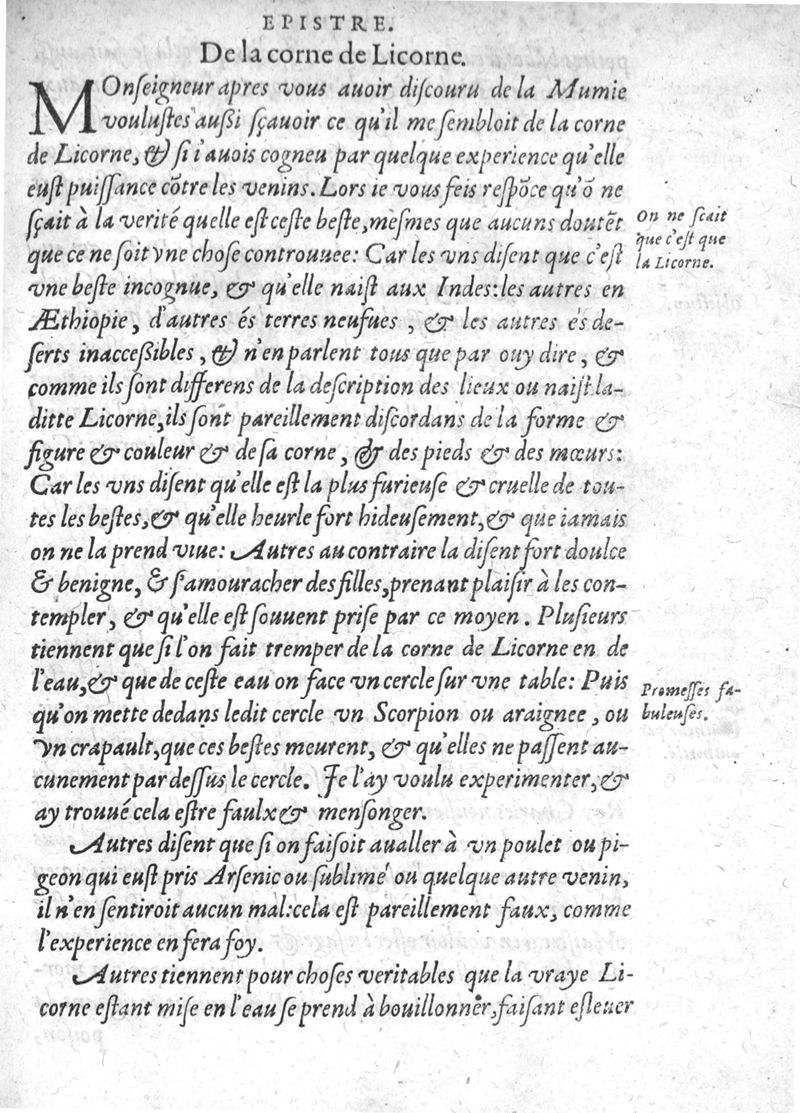 EPISTRE.
De la corne de Licorne.
MOnſeigneur apres vous auoir diſcouru de la Mumie
vouluſtes auſſi ſçauoir ce qu'il me ſembloit de la corne
de Licorne, & ſi i'auois cogneu par quelque experience qu'elle
euſt puiſſance cõtre les venins. Lors ie vous feis reſpõce qu'õ ne
ſçait à la verité quelle eſt ceſte beſte, meſmes que aucuns doutẽt
que ce ne ſoit vne choſe controuuee: Car les vns diſent que c'eſt
vne beſte incognue, & qu'elle naiſt aux Indes: les autres en
Æthiopie, d'autres és terres neufues, & les autres és de-
ſerts inacceſſibles, & n'en parlent tous que par ouy dire, &
comme ils ſont differens de la deſcription des lieux ou naiſt la-
ditte Licorne, ils ſont pareillement diſcordans de la forme &
figure & couleur & de ſa corne, & des pieds & des mœurs:
Car les vns diſent qu'elle eſt la plus furieuſe & cruelle de tou-
tes les beſtes, & qu'elle heurle fort hideuſement, & que iamais
on ne la prend viue: Autres au contraire la diſent fort doulce
& benigne, & ſ'amouracher des filles, prenant plaiſir à les con-
templer, & qu'elle eſt ſouuent priſe par ce moyen. Pluſieurs
tiennent que ſi l'on fait tremper de la corne de Licorne en de
l'eau, & que de ceſte eau on face vn cercle ſur vne table: Puis
qu'on mette dedans ledit cercle vn Scorpion ou araignee, ou
vn crapault, que ces beſtes meurent, & qu'elles ne paſſent au-
cunement par deſſus le cercle. Je l'ay voulu experimenter, &
ay trouué cela eſtre faulx & menſonger.
Autres diſent que ſi on faiſoit aualler à vn poulet ou pi-
geon qui euſt pris Arſenic ou ſublimé ou quelque autre venin,
il n'en ſentiroit aucun mal: cela eſt pareillement faux, comme
l'experience en fera foy.
Autres tiennent pour choſes veritables que la vraye Li-
corne eſtant miſe en l'eau ſe prend à bouillonner, faiſant eſleuer
On ne ſcait
que c'eſt que
la Licorne.
Promeſſes fa-
buleuſes.